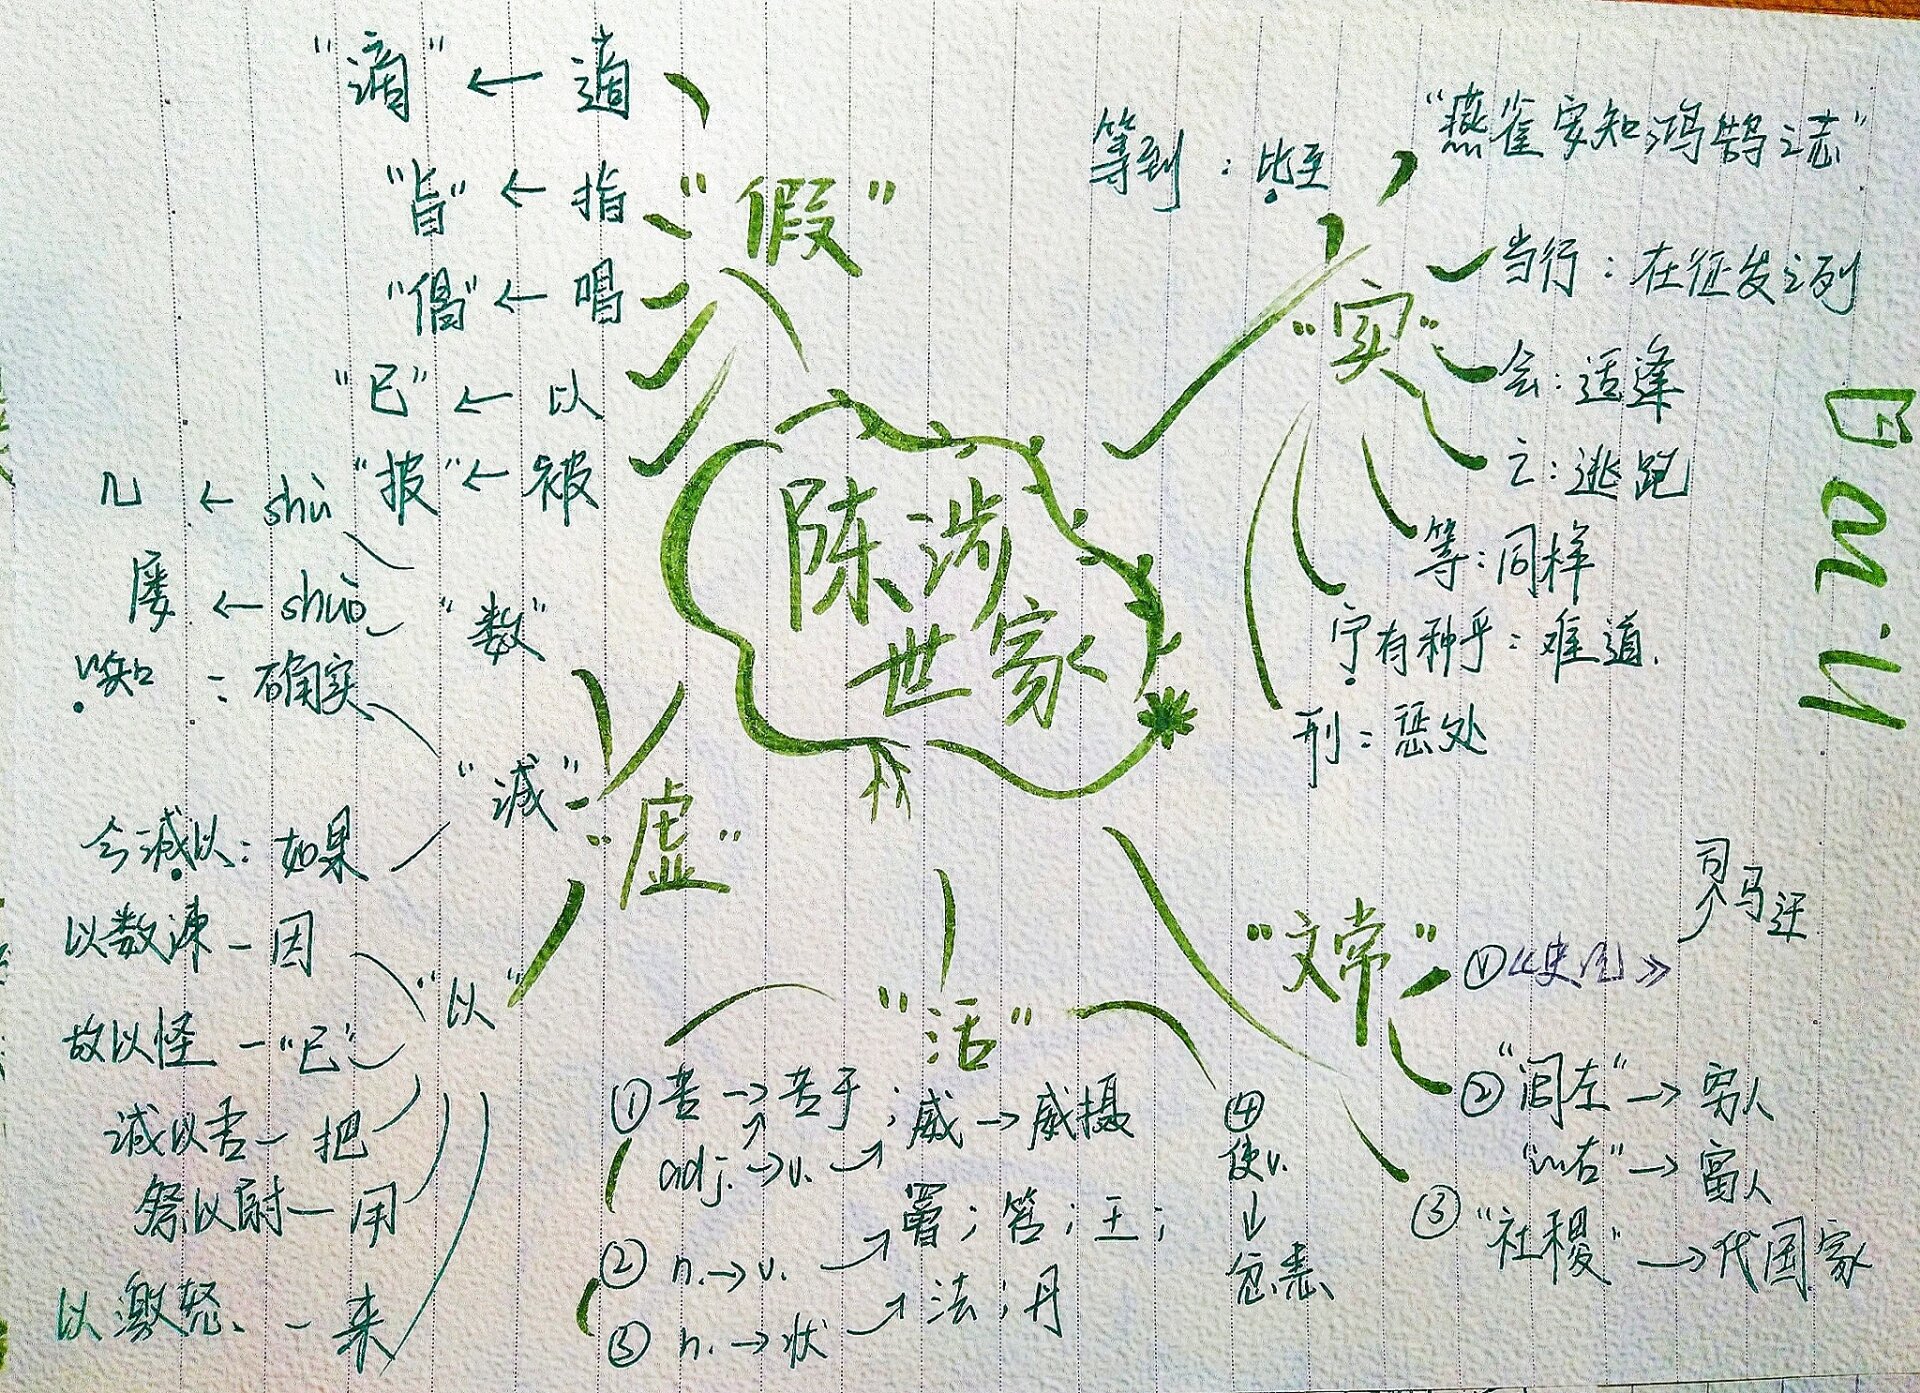 陈涉
世家
"假"
"谪" ← 適
"旨" ← 指
"倡" ← 唱
"已" ← 以
"披" ← 被
"实"
"燕雀安知鸿鹄之志"
等到：比至
当行：在征发之列
会：适逢
亡：逃跑
等：同样
宁有种乎：难道
刑：惩处
"虚"
"数"
几 ← shù
屡 ← shuò
"诚"
诚知：确实
今诚以：如果
"以"
以数谏－因
故以怪－"已"
诚以否－把
祭以尉－用
以激怒－来
"活"
①苦→苦于；威→威摄
adj.→v.
②n.→v. 署；答；王；
③n.→状 法；丹
④
使v.
↓
忿恚
"文常"
①《史记》
司马迁
②"闾左"→穷人
"…右"→富人
③"社稷"→代国家